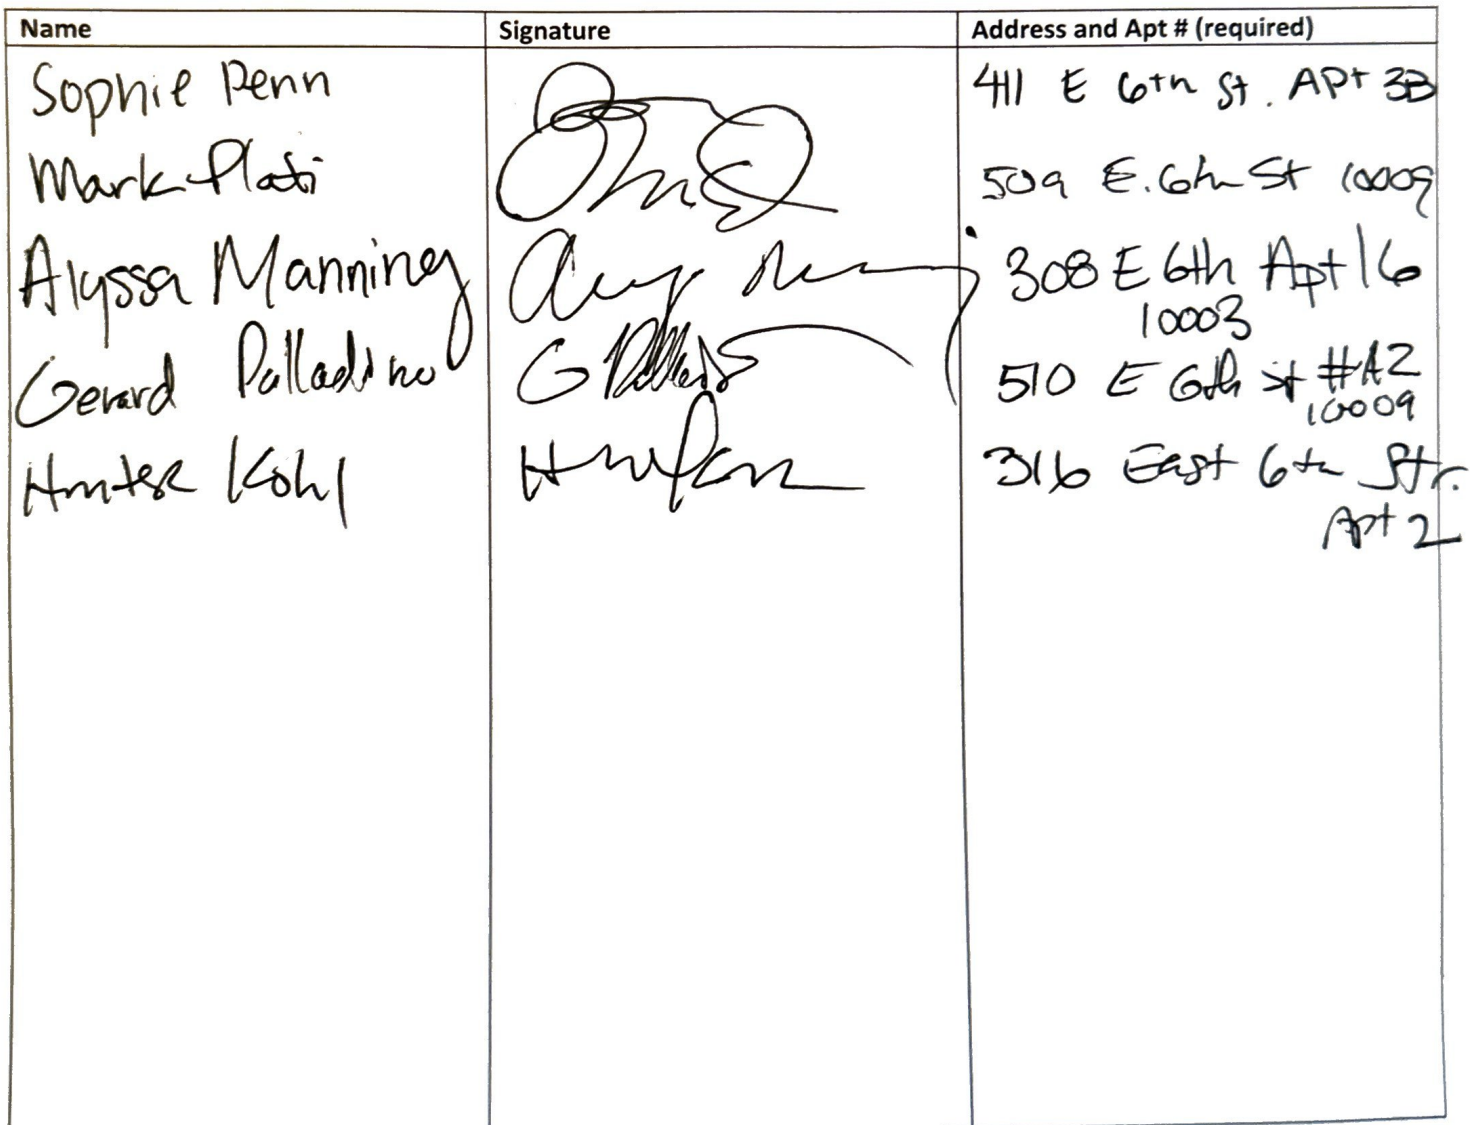 Name Signature Address and Apt # (required)
Sophie Penn 411 E 6th St. APt 3B
Mark Plati 509 E. 6th St 10009
Alyssa Manning 308 E 6th Apt 16
10003
Gerard Palladino G 510 E 6th st #A2
10009
Hunter Kohl 316 East 6th Str.
Apt 2